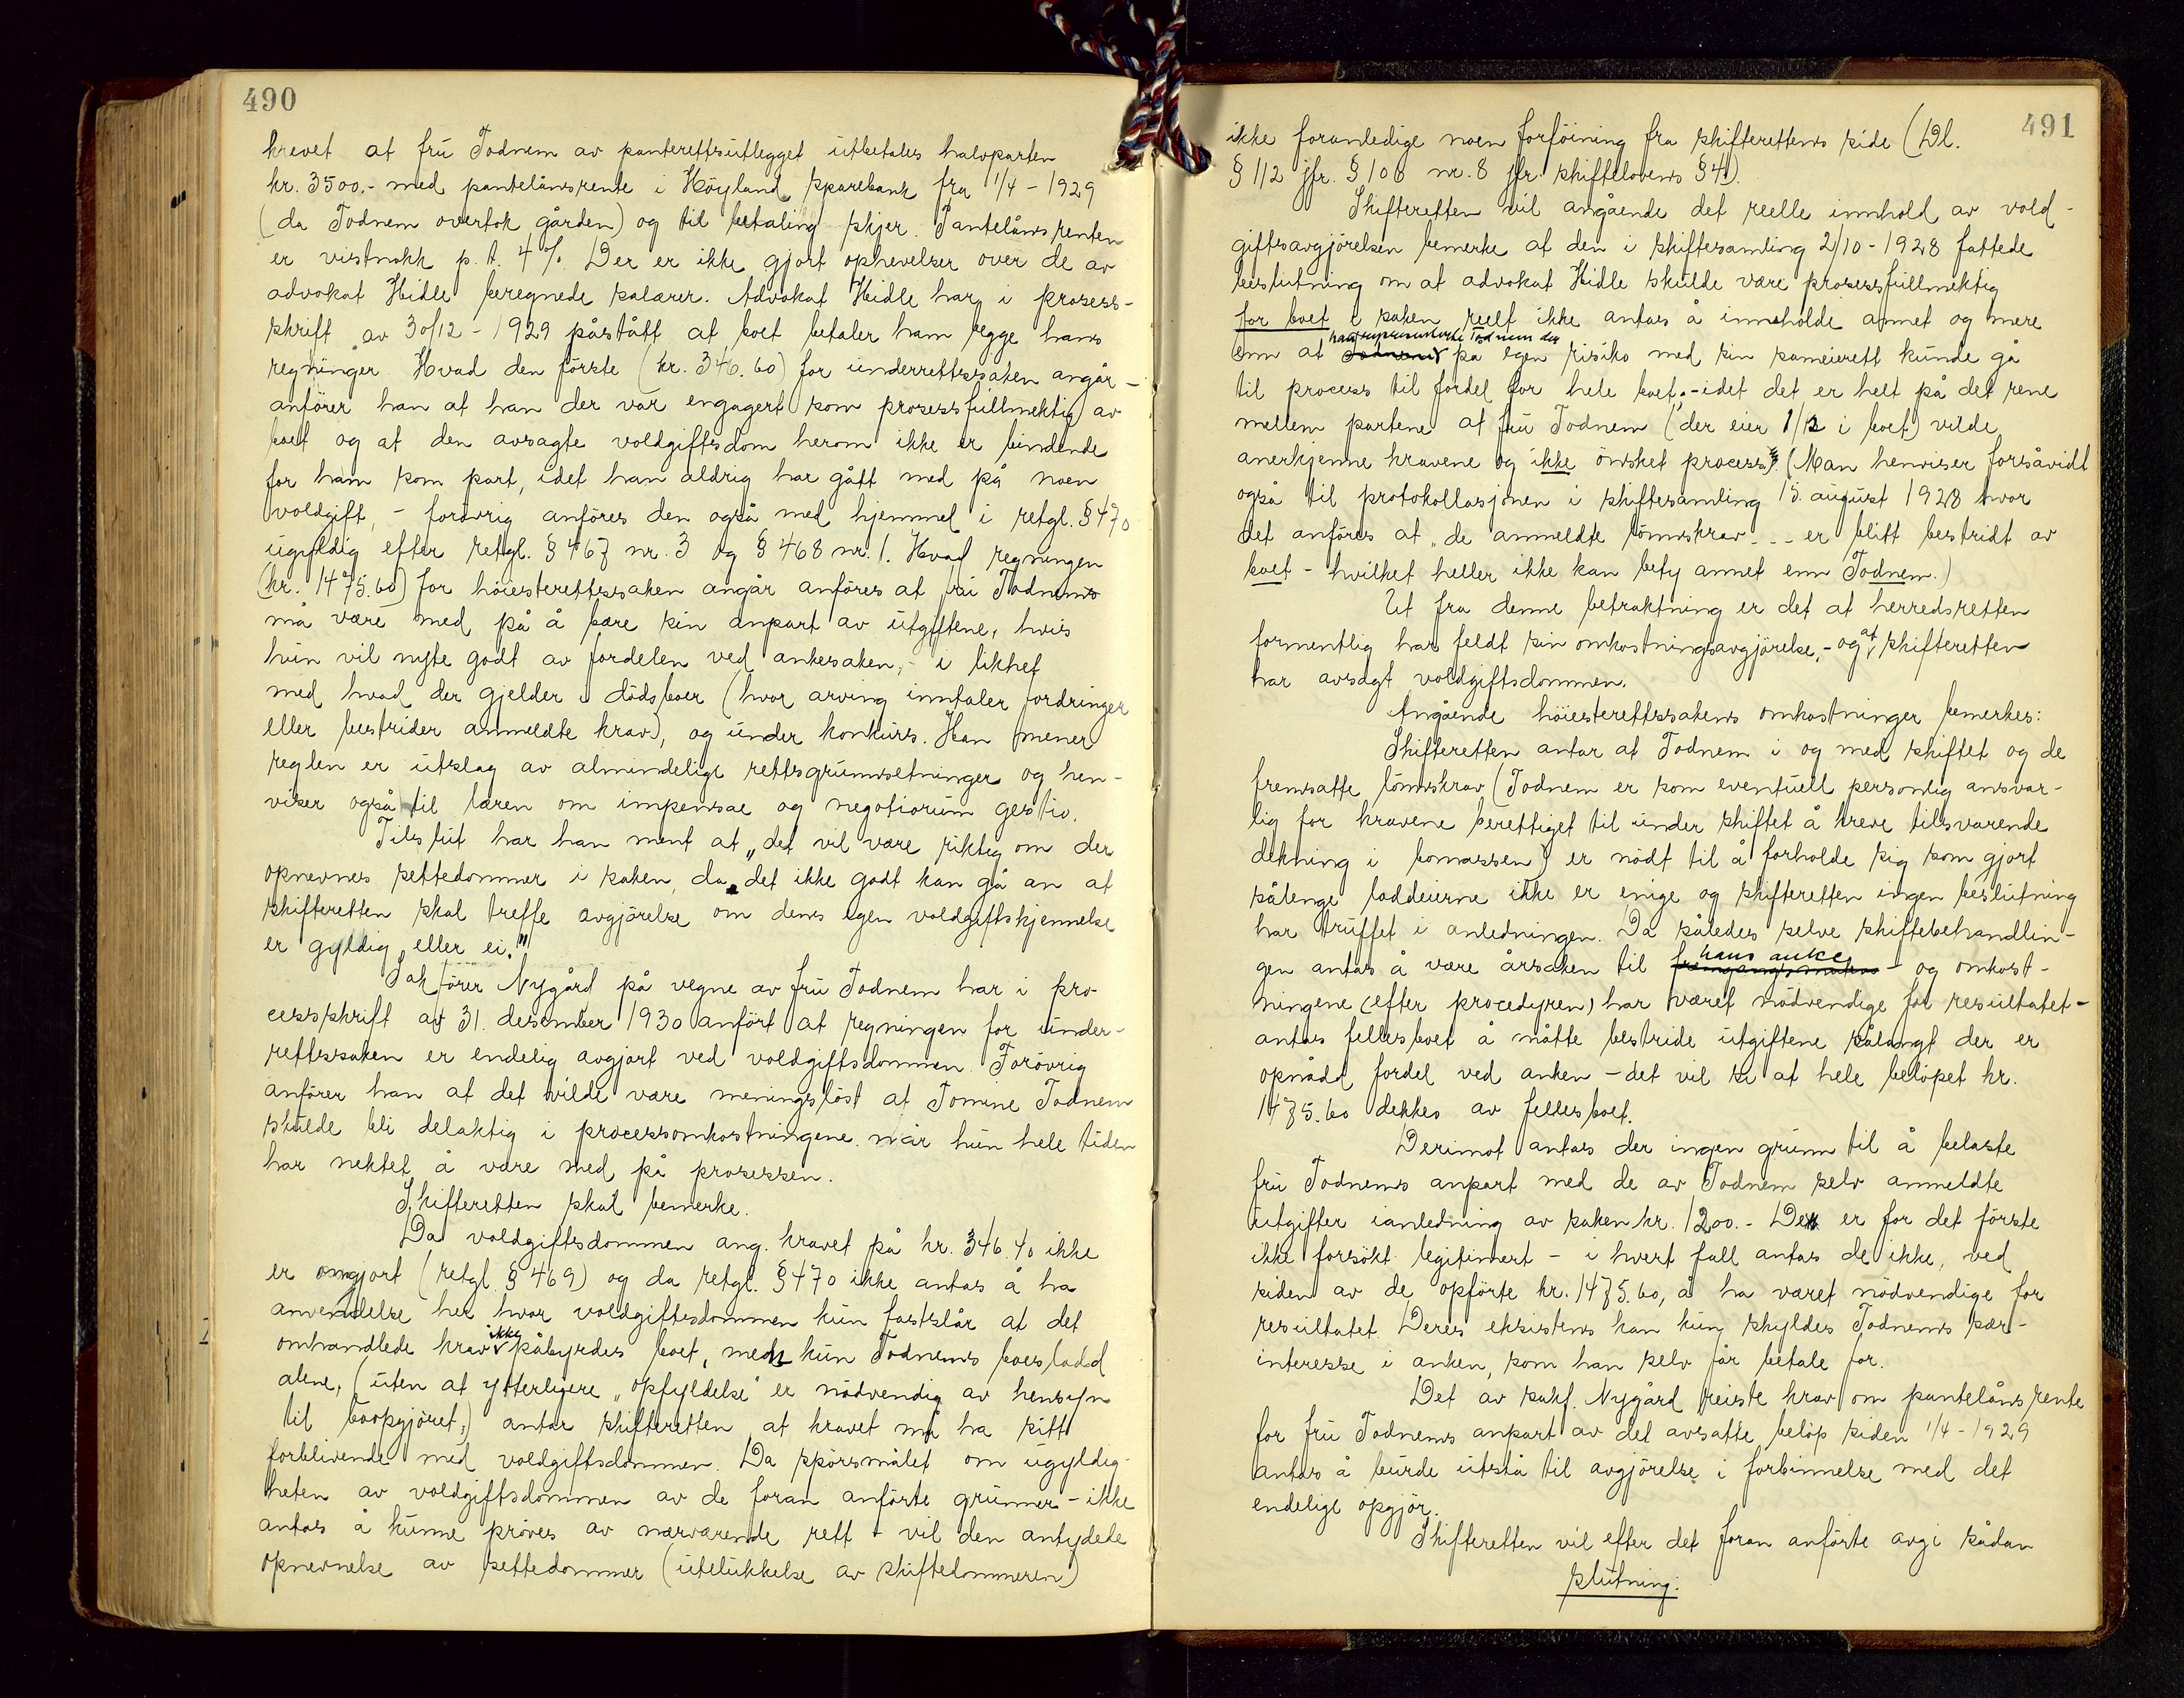 490
krevet at fru Todnem av panterettsutlegget utbetales halvparten
kr. 3500.- med pantelånsrente i Höyland sparebank fra 1/4 - 1929
(da Todnem overtok gården) og til betaling skjer. Pantelånsrenten
er visstnokk p. t. 4%. Der er ikke gjort ophevelser over de av
advokat Hidle beregnede salærer. Advokat Hidle har i prosess-
skrift av 30/12 - 1929 påstått at boet betaler ham begge hans
regninger. Hvad den förste (kr. 346.60) for underrettssaken angår -
anförer han at han der var engagert som prosessfullmektig av
boet og at den avsagte voldgiftsdom herom ikke er bindende
for ham som part, idet han aldrig har gått med på noen
voldgift, - forövrig anföres den også med hjemmel i retgl. § 470
ugyldig efter retgl. § 467 nr. 3 og § 468 nr. 1. Hvad regningen
(kr. 1475.60) for höiesterettssaken angår anföres at fru Todnem
må være med på å bære sin anpart av utgiftene, hvis
hun vil nyte godt av fordelen ved ankesaken, - i likhet
med hvad der gjelder i dödsboer (hvor arving inntaler fordringer
eller bestrider anmeldte krav), og under konkurs. Han mener
reglen er utslag av almindelige rettsgrunnsetninger og hen-
viser også til læren om impensae og negotiorum gestio.
Tilslut har han ment at „det vil være riktig om der
opnevnes settedommer i saken, da det ikke godt kan gå an at
skifteretten skal treffe avgjörelse om dens egen voldgiftskjennelse
er gyldig eller ei."
Sakförer Nygård på vegne av fru Todnem har i pro-
cesskrift av 31. desember 1930 anfört at regningen for under-
rettssaken er endelig avgjort ved voldgiftsdommen. Forövrig
anförer han at det vilde være meningslöst at Tomine Todnem
skulde bli delaktig i processomkostningene når hun hele tiden
har nektet å være med på prosessen.
Skifteretten skal bemerke.
Da voldgiftsdommen ang. kravet på kr. 346.40 ikke
er omgjort (retgl. § 469) og da retgl. § 470 ikke antas å ha
anvendelse her hvor voldgiftsdommen kun fastslår at det
omhandlede krav ikke påbyrdes boet, men kun Todnems boeslodd
alene, (uten at ytterligere „opfyldelse" er nödvendig av hensyn
til boopgjöret,) antar skifteretten at kravet må ha sitt
forblivende med voldgiftsdommen. Da spörsmålet om ugyldig-
heten av voldgiftsdommen av de foran anförte grunner - ikke
antas å kunne pröves av nærværende rett - vil den antydede
opnevnelse av settedommer (utelukkelse av skiftedommeren)
491
ikke foranledige noen forföining fra skifterettens side (Dl.
§ 112 jfr. § 106 nr. 8 jfr. skiftelovens § 4).
Skifteretten vil angående det reelle innhold av vold-
giftsavgjörelsen bemerke at den i skiftesamling 2/10 - 1928 fattede
beslutning om at advokat Hidle skulde være prosessfullmektig
for boet i saken reelt ikke antas å inneholde annet og mere
enn at Todnem på egen risiko med sin sameierett kunde gå
til process til fordel for hele boet; - idet det er helt på det rene
mellem partene at fru Todnem (der eier 1/2 i boet) vilde
anerkjenne kravene og ikke önsket process. (Man henviser forsåvidt
også til protokollasjonen i skiftesamling 15. august 1928 hvor
det anföres at „de anmeldte lönnskrav - - - er blitt bestridt av
boet - hvilket heller ikke kan bety annet enn Todnem.)
Ut fra denne betraktning er det at herredsretten
formentlig har feldt sin omkostningsavgjörelse, - og at skifteretten
har avsagt voldgiftsdommen.
Angående höiesterettssakens omkostninger bemerkes:
Skifteretten antar at Todnem i og med skiftet og de
fremsatte lönnskrav (Todnem er som eventuell personlig ansvar-
lig for kravene berettiget til under skiftet å kreve tilsvarende
dekning i bomassen) er nödt til å forholde sig som gjort
sålenge loddeierne ikke er enige og skifteretten ingen beslutning
har truffet i anledningen. Da således selve skiftebehandlin-
gen antas å være årsaken til hans anke - og omkost-
ningene (efter procedyren) har været nödvendige for resultatet -
antas fellesboet å måtte bestride utgiftene sålangt der er
opnådd fordel ved anken - det vil si at hele belöpet kr.
1475.60 dekkes av fellesboet.
Derimot antas der ingen grunn til å belaste
fru Todnems anpart med de av Todnem selv anmeldte
utgifter ianledning av saken kr. 1200.- De er for det förste
ikke forsökt legitimert - i hvert fall antas de ikke, ved
siden av de opförte kr. 1475.60, å ha været nödvendige for
resultatet. Deres eksistens kan kun skyldes Todnems sær-
interesse i anken, som han selv får betale for.
Det av sakf. Nygård reiste krav om pantelånsrente
for fru Todnems anpart av det avsatte belöp siden 1/4 - 1929
antas å burde utstå til avgjörelse i forbinnelse med det
endelige opgjör.
Skifteretten vil efter det foran anförte avgi sådan
slutning: